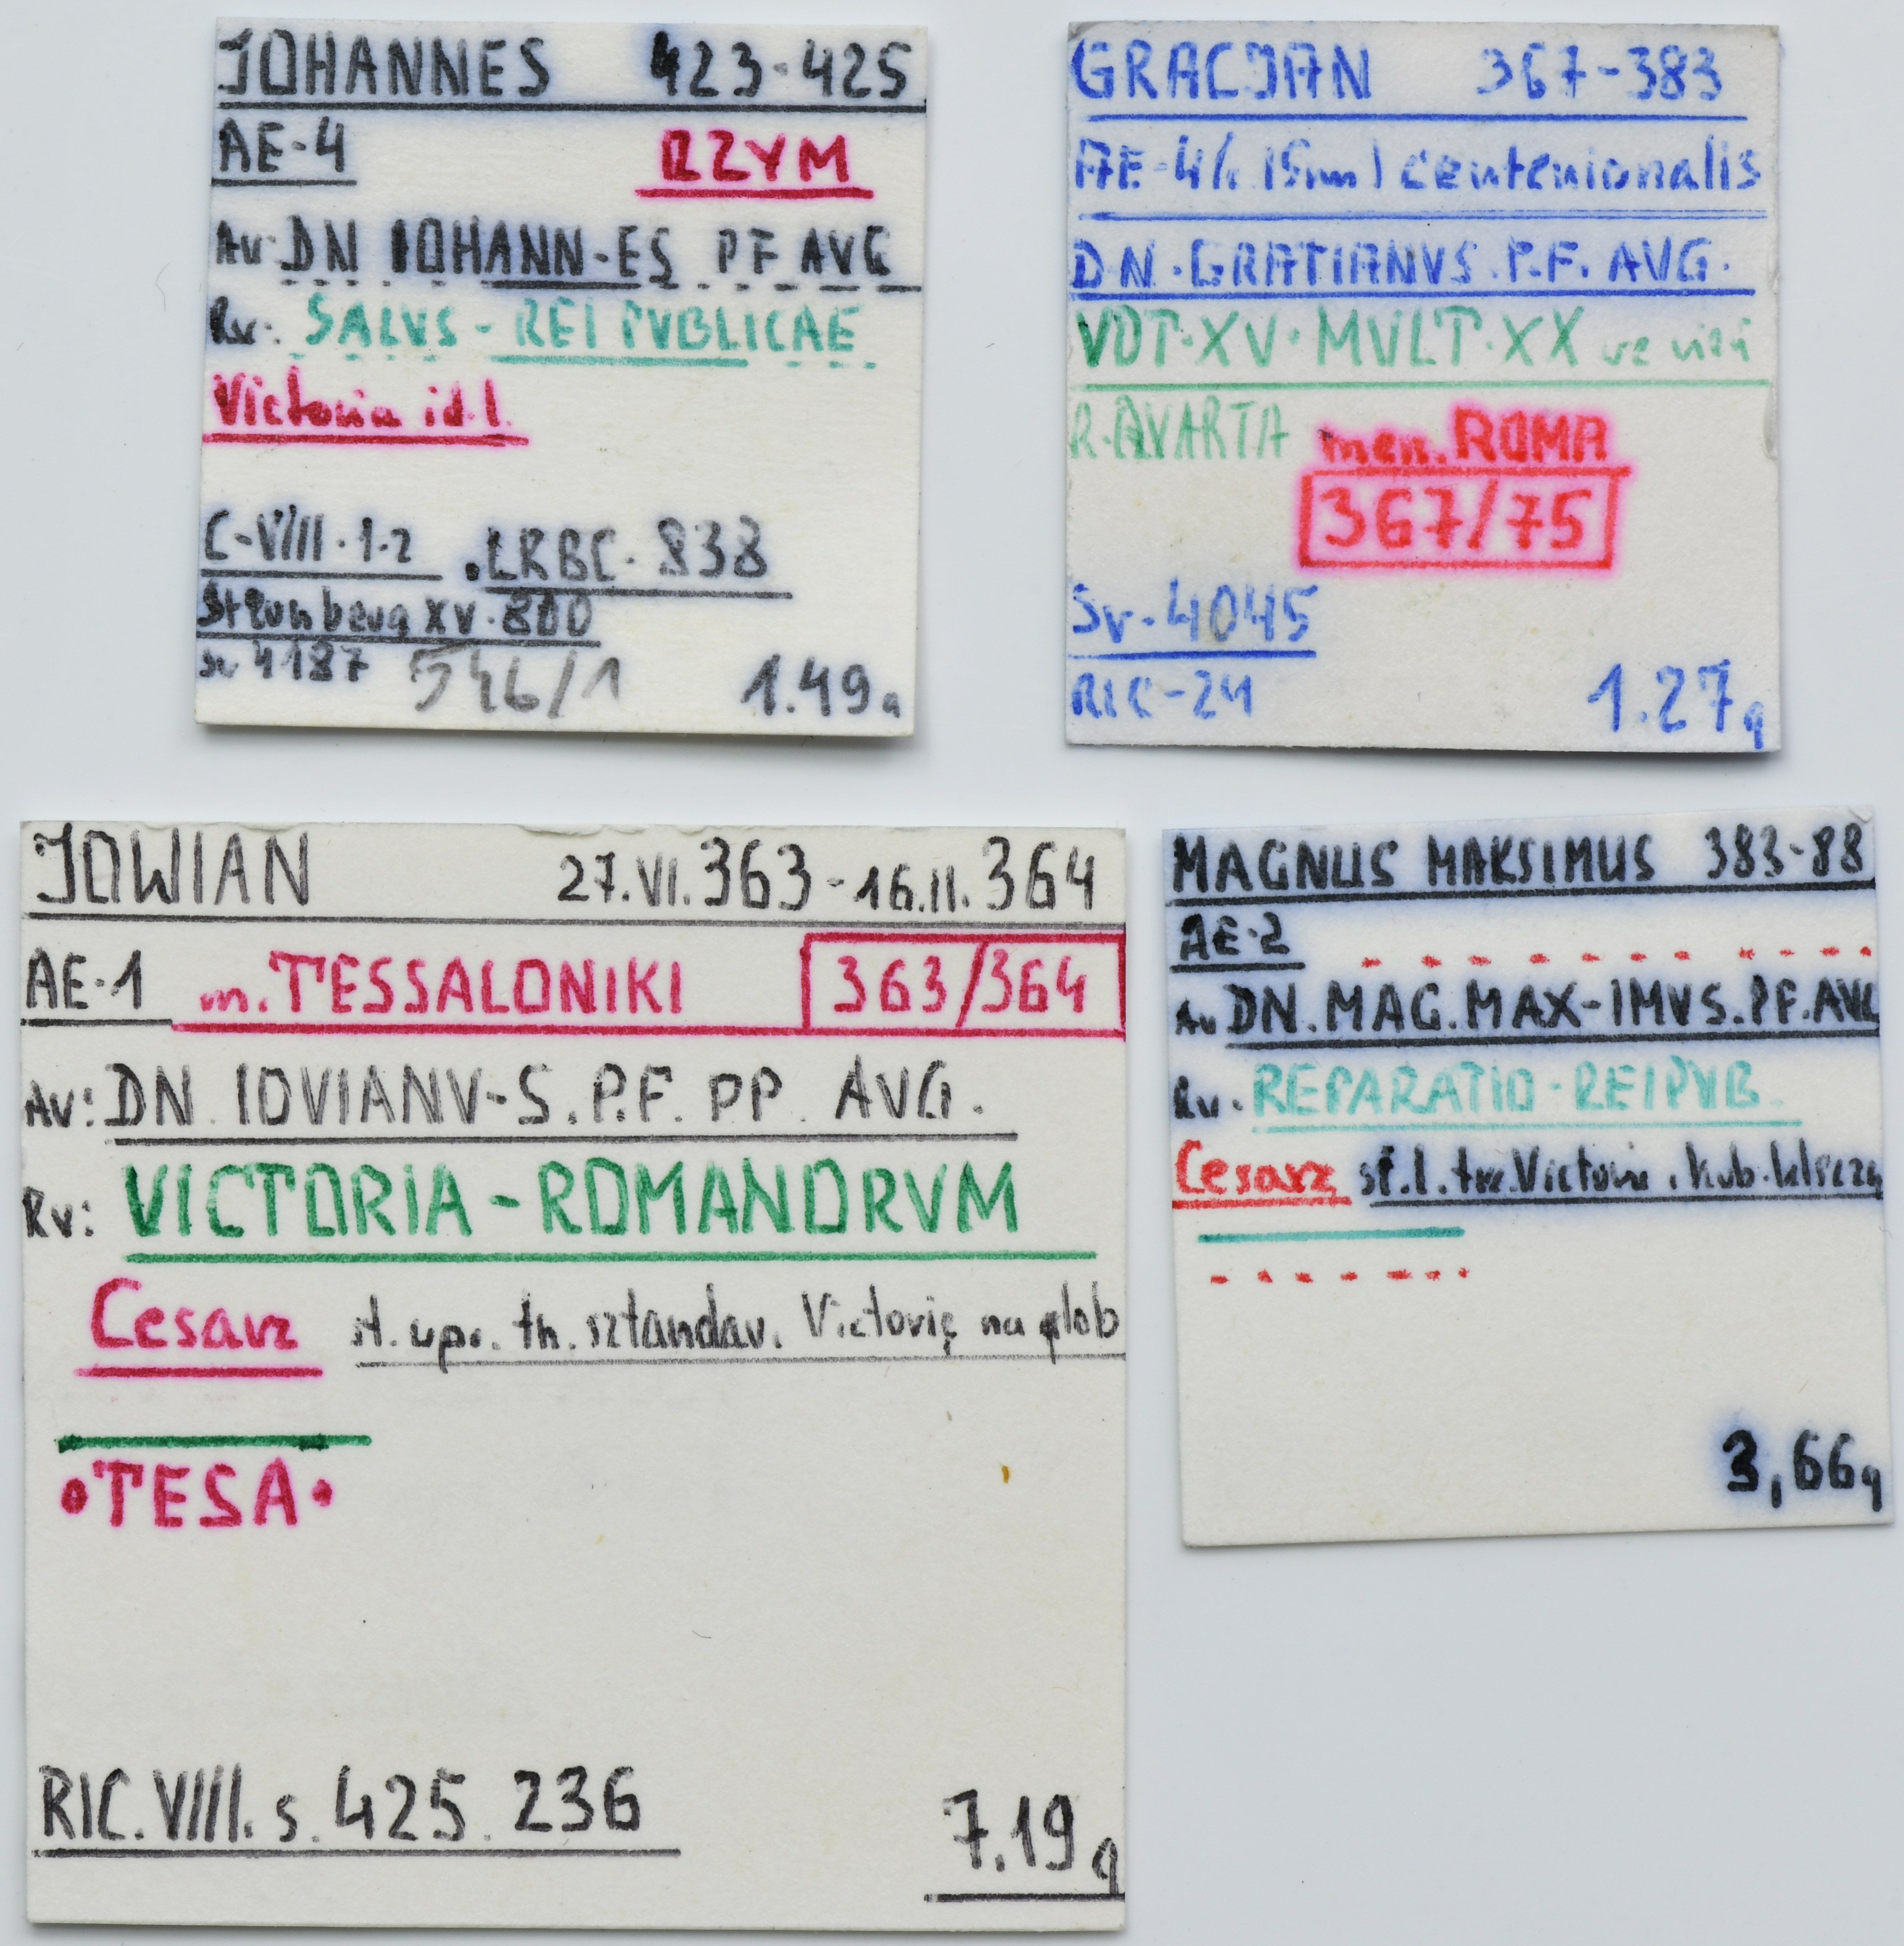 JOHANNES 423-425
AE-4 RZYM
Av: DN IOHANN-ES PF AVG
Rv: SALVS - REI PVBLICAE
Victoria id. l.
C-VIII·1-2 .LRBC· 838
Sternberg XV·800
sv 4187 546/1 1.49g
GRACJAN 367-383
AE-4/ (15mm) centenionalis
DN·GRATIANVS.P.F. AVG.
VOT·XV·MVLT·XX we
R·QVARTA men. ROMA
367/75
Sv-4045
RIC-24 1.27g
JOWIAN 27.VI.363-16.II.364
AE-1 m.TESSALONIKI 363/364
Av: DN. IOVIANV-S.P.F. PP. AVG.
Rv: VICTORIA-ROMANORVM
Cesarz st. wpr. th. sztandar. Victorię na glob
•TESA•
RIC.VIII.s.425.236
7.19g
MAGNUS MAKSIMUS 383-88
AE-2
Av DN.MAG.MAX-IMVS.PF.AVG
Rv. REPARATIO-REIPVB.
Cesarz st.l.
3,66g